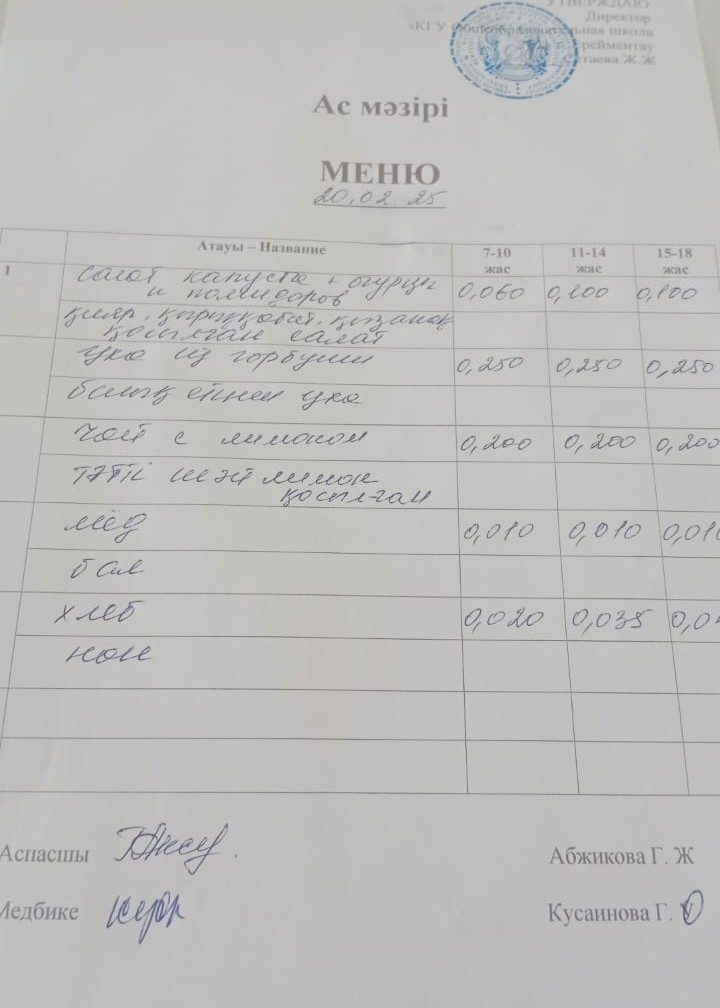 УТВЕРЖДАЮ
Директор
«КГУ Общеобразовательная школа
Ж.Ж
Ас мәзірі
МЕНЮ
20.02.25
Атауы – Название 7-10 жас 11-14 жас 15-18 жас
1 Салат капуста + огурцы
и помидоров 0,060 0,100 0,100
қияр, қырыққабат, қызанақ
қосылған салат
Уха из горбуши 0,250 0,250 0,250
балық етінен уха
Чай с лимоном 0,200 0,200 0,200
тәтті шәй лимон
қосылған
мёд 0,010 0,010 0,010
бал
хлеб 0,020 0,035 0,0
нан
Аспасшы Абжикова Г. Ж
Медбике Кусаинова Г.